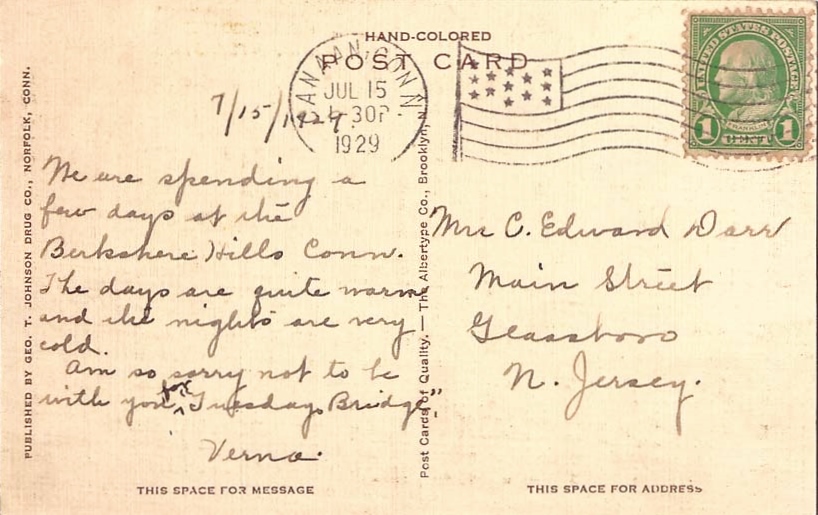 HAND-COLORED
POST CARD
ANAAN, CONN
JUL 15
30P
1929
UNITED STATES POSTAGE
FRANKLIN
1 CENT 1
7/15/1929.
We are spending a
few days at the
Berkshere Hills Conn.
The days are quite warm
and the nights are very
cold.
Am so sorry not to be
with you for "Tuesdays Bridge"
Verna.
Mrs C. Edward Darr
Main Street
Glassboro
N. Jersey.
PUBLISHED BY GEO. T. JOHNSON DRUG CO., NORFOLK, CONN.
Post Cards of Quality. — The Albertype Co., Brooklyn, N.
THIS SPACE FOR MESSAGE
THIS SPACE FOR ADDRESS